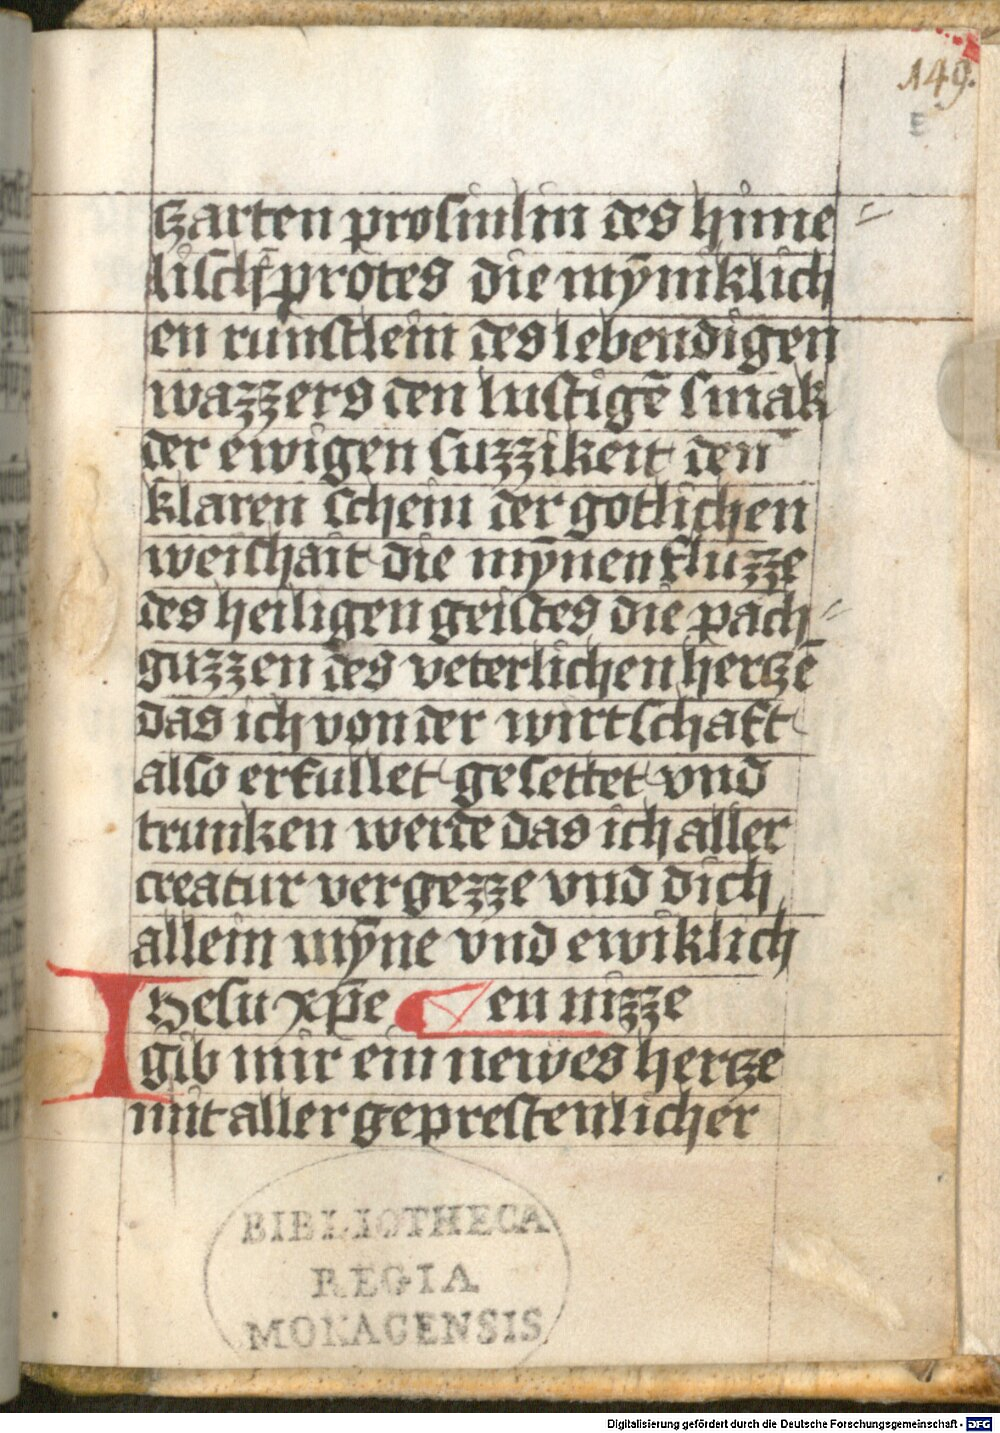 149.
E
zarten prosmlin des hime
lischē protes die mȳniklich
en runstlein des lebendigen
wazzers den lustigē smak
der ewigen suzzikeit den
klaren schein der gotlichen
weishait die mȳnenfluzze
des heiligen geistes die pach
guzzen des veterlichen hertzē
das ich von der wirtschaft
also erfullet gesettet vnd
trunken werde das ich aller
creatur vergezze vnd dich
allein mȳne vnd ewiklich
Ihesu xp̄e en nizze
gib mir ein newes hertze
mit aller geprestenlicher
BIBLIOTHECA
REGIA
MONACENSIS
Digitalisierung gefördert durch die Deutsche Forschungsgemeinschaft - DFG